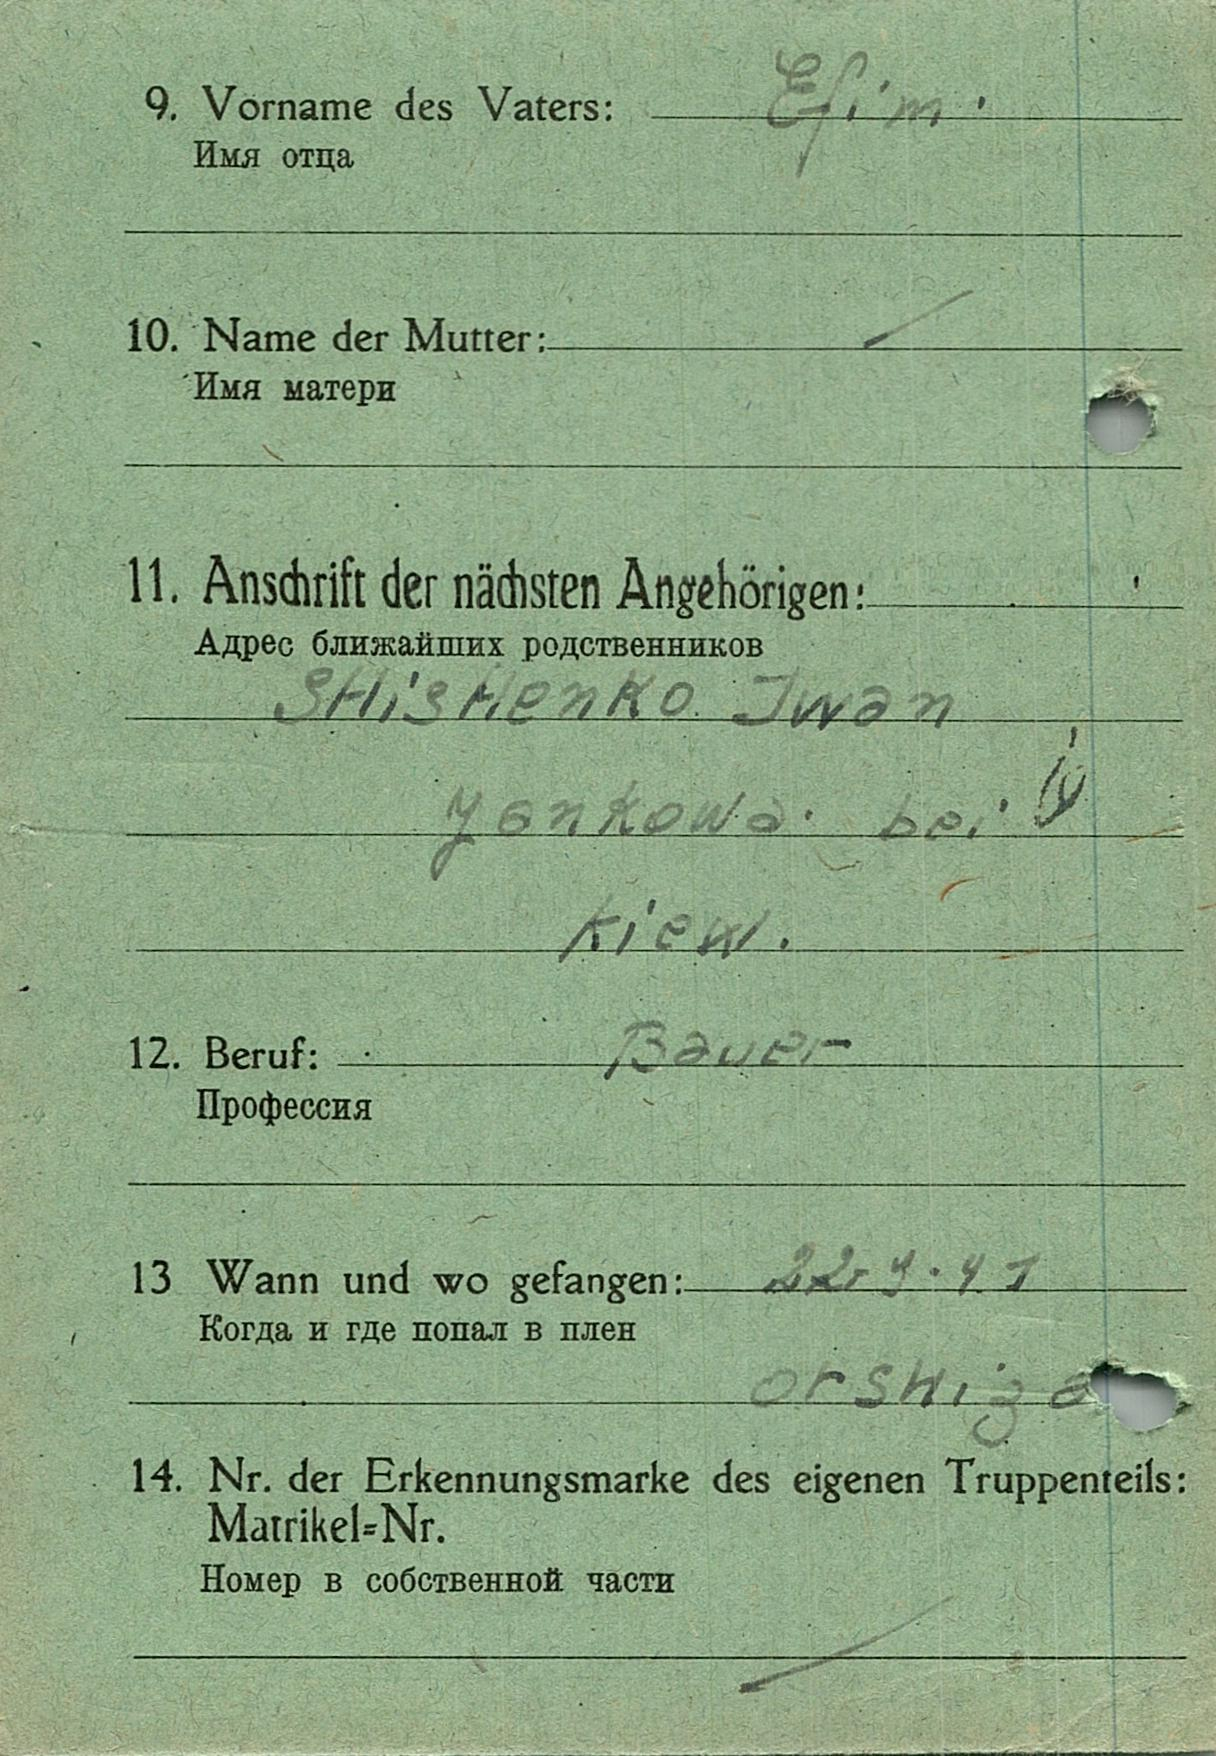 9. Vorname des Vaters: Efim.
Имя отца
10. Name der Mutter:
Имя матери
11. Anschrift der nächsten Angehörigen:
Адрес ближайших родственников
SHisHenko Iwan
Yankowa. bei
Kiew.
12. Beruf: Bauer
Профессия
13 Wann und wo gefangen: 22. 9. 41
Когда и где попал в плен
Orshiza
14. Nr. der Erkennungsmarke des eigenen Truppenteils:
Matrikel=Nr.
Номер в собственной части